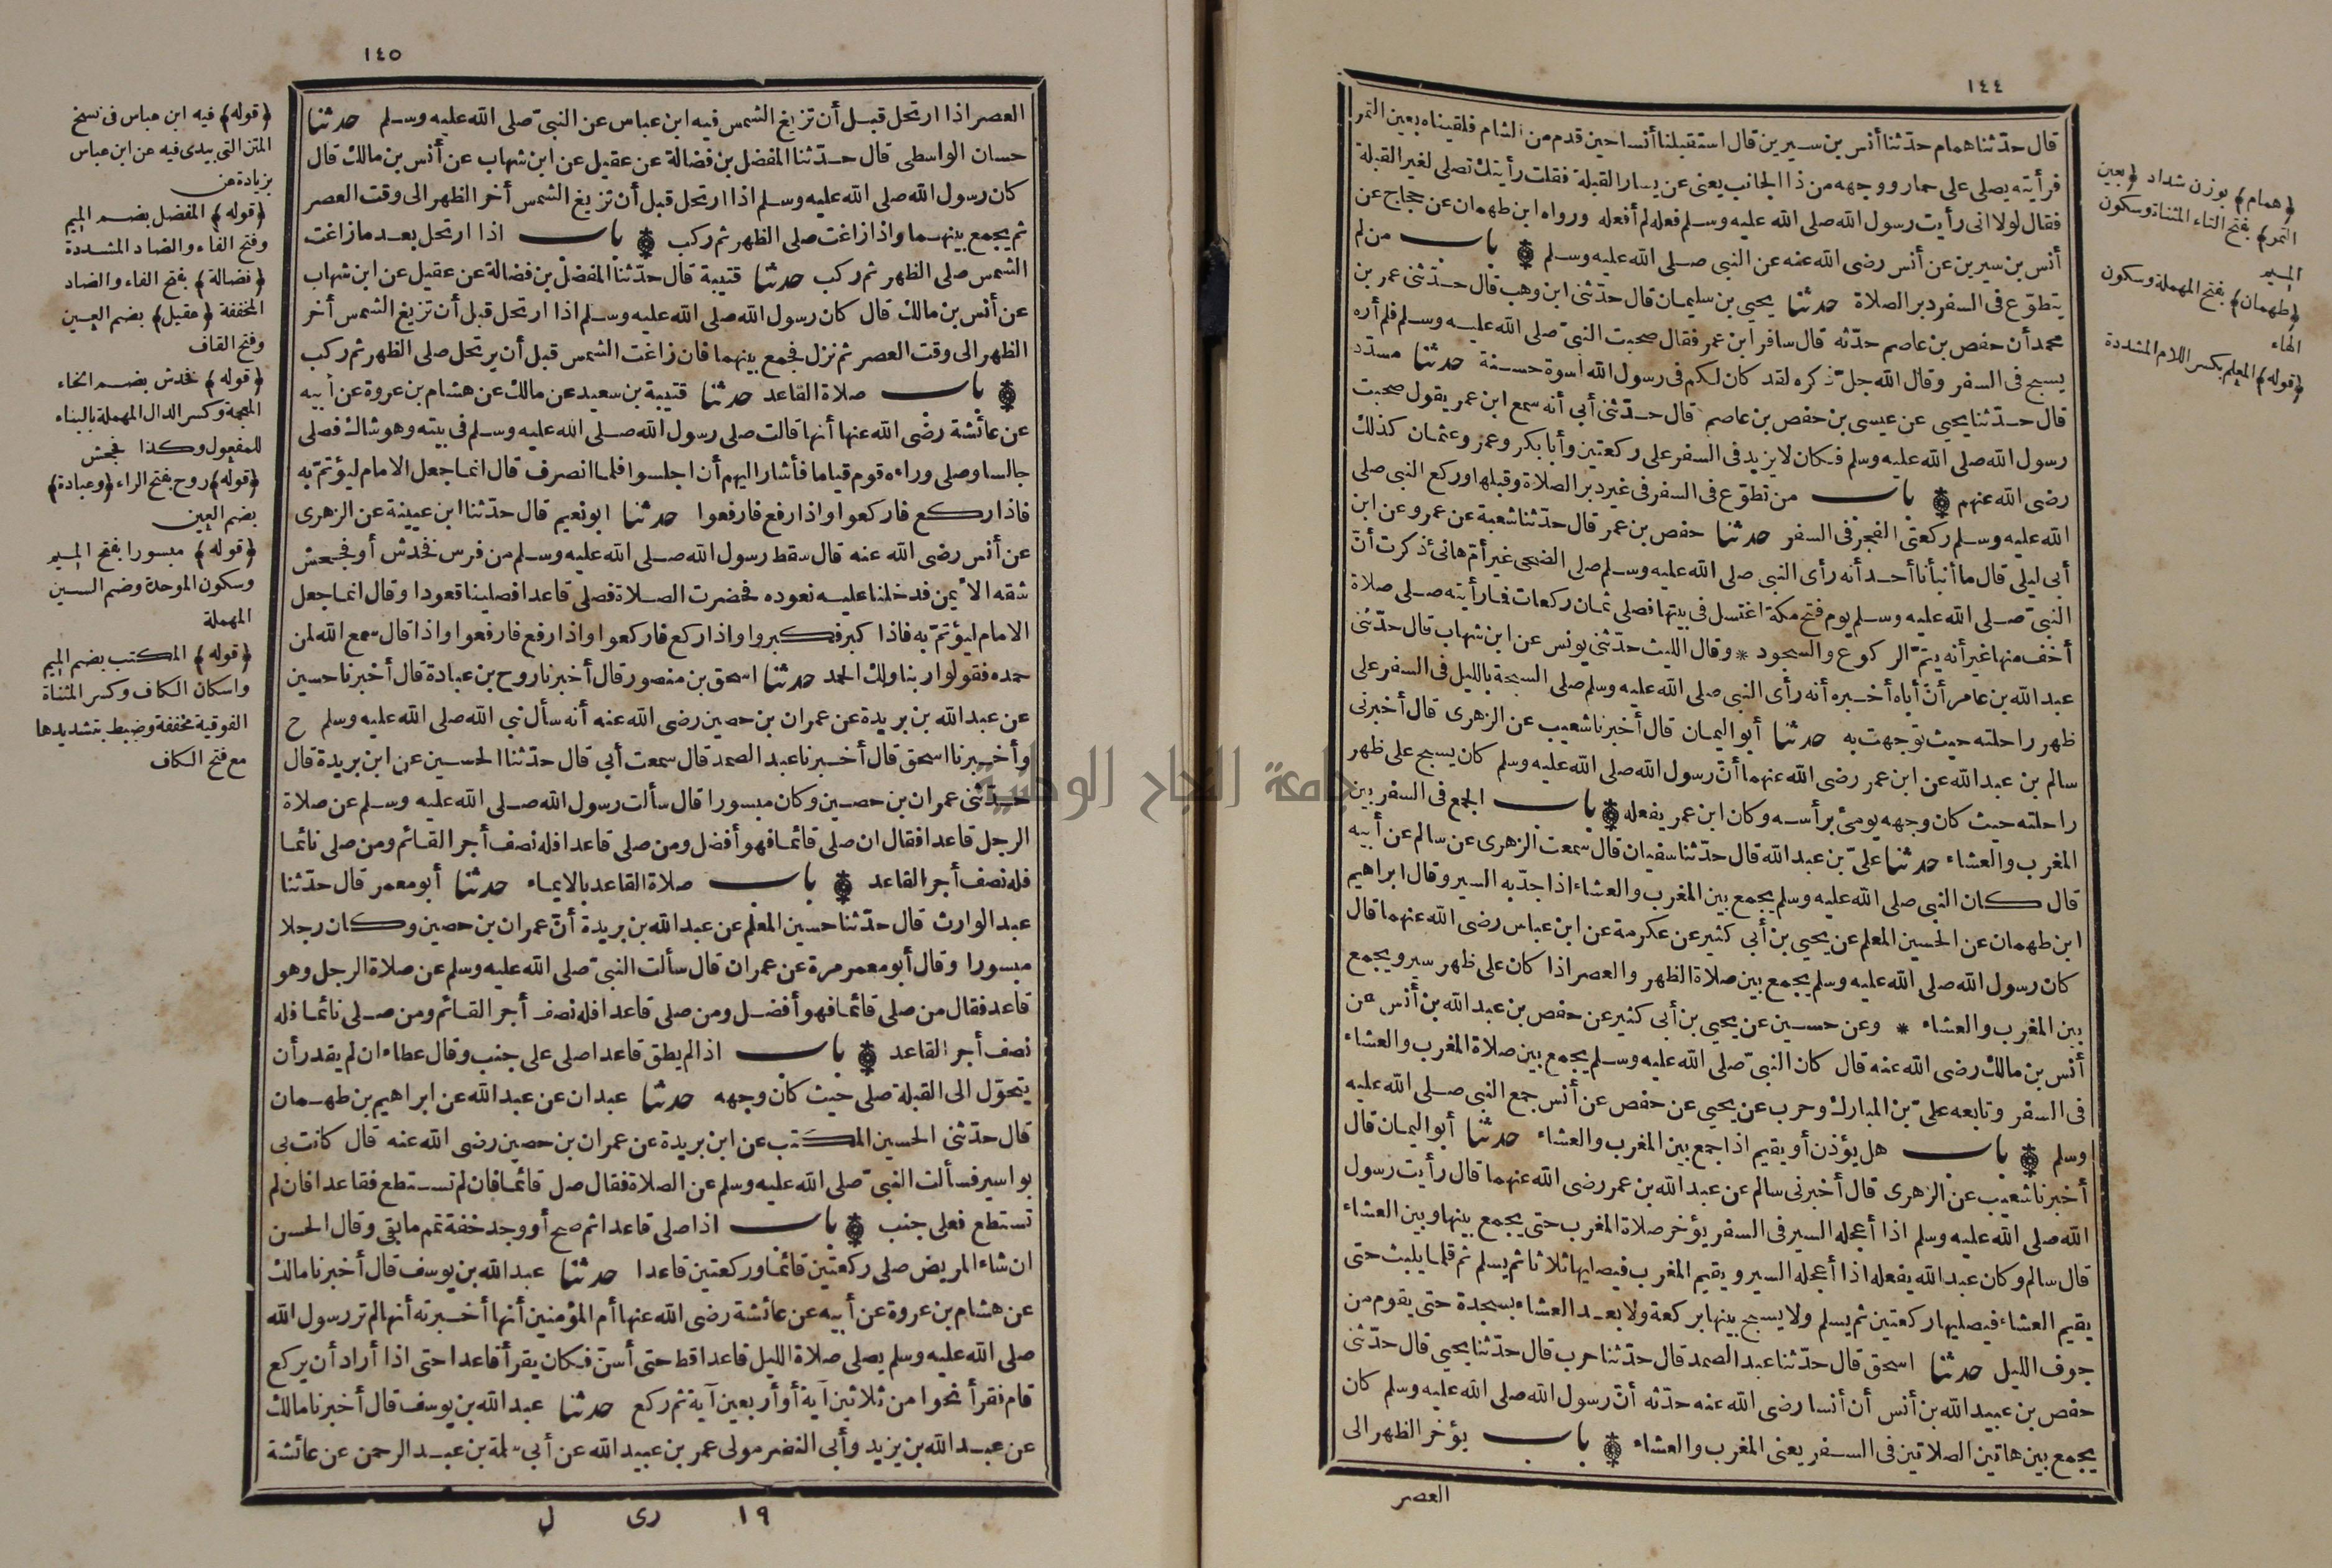 ١٤٤
قال حدّثنا همام حدّثنا أنس بن سيرين قال استقبلنا أنسا حين قدم من الشام فلقيناه بعين التمر
فرأيته يصلى على حمار ووجهه من ذا الجانب يعنى عن يسار القبلة فقلت رأيتك تصلى لغير القبلة
فقال لولا انى رأيت رسول الله صلى الله عليه وسلم فعله لم أفعله ورواه ابن طهمان عن حجاج عن
أنس بن سيرين عن أنس رضى الله عنه عن النبى صلى الله عليه وسلم باب من لم
يتطوّع فى السفر دبر الصلاة حدثنا يحيى بن سليمان قال حدّثنى ابن وهب قال حدّثنى عمر بن
محمد أن حفص بن عاصم حدّثه قال سافر ابن عمر فقال صحبت النبىّ صلى الله عليه وسلم فلم أره
يسبح فى السفر وقال الله جلّ ذكره لقد كان لكم فى رسول الله أسوة حسنة حدثنا مسدّد
قال حدّثنا يحيى عن عيسى بن حفص بن عاصم قال حدّثنى أبى أنه سمع ابن عمر يقول صحبت
رسول الله صلى الله عليه وسلم فكان لا يزيد فى السفر على ركعتين وأبا بكر وعمر وعثمان كذلك
رضى الله عنهم باب من تطوّع فى السفر فى غير دبر الصلاة وقبلها وركع النبى صلى
الله عليه وسلم ركعتى الفجر فى السفر حدثنا حفص بن عمر قال حدّثنا شعبة عن عمرو عن ابن
أبى ليلى قال ما أنبأنا أحد أنه رأى النبى صلى الله عليه وسلم صلى الضحى غير أمّ هانئ ذكرت أنّ
النبىّ صلى الله عليه وسلم يوم فتح مكة اغتسل فى بيتها فصلى ثمان ركعات فما رأيته صلى صلاة
أخف منها غير أنه يتمّ الركوع والسجود * وقال الليث حدّثنى يونس عن ابن شهاب قال حدّثنى
عبد الله بن عامر أنّ أباه أخبره أنه رأى النبى صلى الله عليه وسلم صلى السبحة بالليل فى السفر على
ظهر راحلته حيث توجهت به حدثنا أبو اليمان قال أخبرنا شعيب عن الزهرى قال أخبرنى
سالم بن عبد الله عن ابن عمر رضى الله عنهما أنّ رسول الله صلى الله عليه وسلم كان يسبح على ظهر
راحلته حيث كان وجهه يومئ برأسه وكان ابن عمر يفعله باب الجمع فى السفر بين
المغرب والعشاء حدثنا علىّ بن عبد الله قال حدّثنا سفيان قال سمعت الزهرى عن سالم عن أبيه
قال كان النبى صلى الله عليه وسلم يجمع بين المغرب والعشاء اذا جدّ به السير وقال ابراهيم
ابن طهمان عن الحسين المعلم عن يحيى بن أبى كثير عن عكرمة عن ابن عباس رضى الله عنهما قال
كان رسول الله صلى الله عليه وسلم يجمع بين صلاة الظهر والعصر اذا كان على ظهر سير ويجمع
بين المغرب والعشاء * وعن حسين عن يحيى بن أبى كثير عن حفص بن عبد الله بن أنس عن
أنس بن مالك رضى الله عنه قال كان النبىّ صلى الله عليه وسلم يجمع بين صلاة المغرب والعشاء
فى السفر وتابعه علىّ بن المبارك وحرب عن يحيى عن حفص عن أنس جمع النبى صلى الله عليه
وسلم باب هل يؤذن أو يقيم اذا جمع بين المغرب والعشاء حدثنا أبو اليمان قال
أخبرنا شعيب عن الزهرى قال أخبرنى سالم عن عبد الله بن عمر رضى الله عنهما قال رأيت رسول
الله صلى الله عليه وسلم اذا أعجله السير فى السفر يؤخر صلاة المغرب حتى يجمع بينها وبين العشاء
قال سالم وكان عبد الله يفعله اذا أعجله السير ويقيم المغرب فيصليها ثلاثا ثم يسلم ثم قلما يلبث حتى
يقيم العشاء فيصليها ركعتين ثم يسلم ولا يسبح بينها بركعة ولا بعد العشاء بسجدة حتى يقوم من
جوف الليل حدثنا اسحق قال حدّثنا عبد الصمد قال حدّثنا حرب قال حدّثنا يحيى قال حدّثنى
حفص بن عبيد الله بن أنس أن أنسا رضى الله عنه حدّثه أنّ رسول الله صلى الله عليه وسلم كان
يجمع بين هاتين الصلاتين فى السفر يعنى المغرب والعشاء باب يؤخر الظهر الى
العصر
﴿همام﴾ بوزن شداد ﴿بعين
التمر﴾ بفتح التاء المثناة وسكون
الميم
﴿طهمان﴾ بفتح المهملة وسكون
الهاء
﴿قوله﴾ المعلم بكسر اللام المشددة
١٤٥
العصر اذا ارتحل قبل أن تزيغ الشمس فيه ابن عباس عن النبىّ صلى الله عليه وسلم حدثنا
حسان الواسطى قال حدّثنا المفضل بن فضالة عن عقيل عن ابن شهاب عن أنس بن مالك قال
كان رسول الله صلى الله عليه وسلم اذا ارتحل قبل أن تزيغ الشمس أخر الظهر الى وقت العصر
ثم يجمع بينهما واذا زاغت صلى الظهر ثم ركب باب اذا ارتحل بعد ما زاغت
الشمس صلى الظهر ثم ركب حدثنا قتيبة قال حدّثنا المفضل بن فضالة عن عقيل عن ابن شهاب
عن أنس بن مالك قال كان رسول الله صلى الله عليه وسلم اذا ارتحل قبل أن تزيغ الشمس أخر
الظهر الى وقت العصر ثم نزل فجمع بينهما فان زاغت الشمس قبل أن يرتحل صلى الظهر ثم ركب
باب صلاة القاعد حدثنا قتيبة بن سعيد عن مالك عن هشام بن عروة عن أبيه
عن عائشة رضى الله عنها أنها قالت صلى رسول الله صلى الله عليه وسلم فى بيته وهو شاك فصلى
جالسا وصلى وراءه قوم قياما فأشار اليهم أن اجلسوا فلما انصرف قال انما جعل الامام ليؤتمّ به
فاذا ركع فاركعوا واذا رفع فارفعوا حدثنا ابو نعيم قال حدّثنا ابن عيينة عن الزهرى
عن أنس رضى الله عنه قال سقط رسول الله صلى الله عليه وسلم من فرس فخدش أو فجحش
شقه الأيمن فدخلنا عليه نعوده فحضرت الصلاة فصلى قاعدا فصلينا قعودا وقال انما جعل
الامام ليؤتمّ به فاذا كبر فكبروا واذا ركع فاركعوا واذا رفع فارفعوا واذا قال سمع الله لمن
حمده فقولوا ربنا ولك الحمد حدثنا اسحق بن منصور قال أخبرنا روح بن عبادة قال أخبرنا حسين
عن عبد الله بن بريدة عن عمران بن حصين رضى الله عنه أنه سأل نبى الله صلى الله عليه وسلم ح
وأخبرنا اسحق قال أخبرنا عبد الصمد قال سمعت أبى قال حدّثنا الحسين عن ابن بريدة قال
حدّثنى عمران بن حصين وكان مبسورا قال سألت رسول الله صلى الله عليه وسلم عن صلاة
الرجل قاعدا فقال ان صلى قائما فهو أفضل ومن صلى قاعدا فله نصف أجر القائم ومن صلى نائما
فله نصف أجر القاعد باب صلاة القاعد بالايماء حدثنا أبو معمر قال حدّثنا
عبد الوارث قال حدّثنا حسين المعلم عن عبد الله بن بريدة أنّ عمران بن حصين وكان رجلا
مبسورا وقال أبو معمر مرة عن عمران قال سألت النبىّ صلى الله عليه وسلم عن صلاة الرجل وهو
قاعد فقال من صلى قائما فهو أفضل ومن صلى قاعدا فله نصف أجر القائم ومن صلى نائما فله
نصف أجر القاعد باب اذا لم يطق قاعدا صلى على جنب وقال عطاء ان لم يقدر أن
يتحوّل الى القبلة صلى حيث كان وجهه حدثنا عبدان عن عبد الله عن ابراهيم بن طهمان
قال حدّثنى الحسين المكتب عن ابن بريدة عن عمران بن حصين رضى الله عنه قال كانت بى
بواسير فسألت النبىّ صلى الله عليه وسلم عن الصلاة فقال صل قائما فان لم تستطع فقاعدا فان لم
تستطع فعلى جنب باب اذا صلى قاعدا ثم صح أو وجد خفة تمم ما بقى وقال الحسن
ان شاء المريض صلى ركعتين قائما وركعتين قاعدا حدثنا عبد الله بن يوسف قال أخبرنا مالك
عن هشام بن عروة عن أبيه عن عائشة رضى الله عنها أم المؤمنين أنها أخبرته أنها لم تر رسول الله
صلى الله عليه وسلم يصلى صلاة الليل قاعدا قط حتى أسنّ فكان يقرأ قاعدا حتى اذا أراد أن يركع
قام فقرأ نحوا من ثلاثين آية أو أربعين آية ثم ركع حدثنا عبد الله بن يوسف قال أخبرنا مالك
عن عبد الله بن يزيد وأبى النضر مولى عمر بن عبيد الله عن أبى سلمة بن عبد الرحمن عن عائشة
١٩ رى ل
﴿قوله﴾ فيه ابن عباس فى نسخ
المتن التى بيدى فيه عن ابن عباس
بزيادة عن
﴿قوله﴾ المفضل بضم الميم
وفتح الفاء والضاد المشددة
﴿فضالة﴾ بفتح الفاء والضاد
المخففة ﴿عقيل﴾ بضم العين
وفتح القاف
﴿قوله﴾ فخدش بضم الخاء
المعجمة وكسر الدال المهملة بالبناء
للمفعول وكذا فجحش
﴿قوله﴾ روح بفتح الراء ﴿وعبادة﴾
بضم العين
﴿قوله﴾ مبسورا بفتح الميم
وسكون الموحدة وضم السين
المهملة
﴿قوله﴾ المكتب بضم الميم
واسكان الكاف وكسر المثناة
الفوقية مخففة وضبط بتشديدها
مع فتح الكاف
جامعة النجاح الوطنية